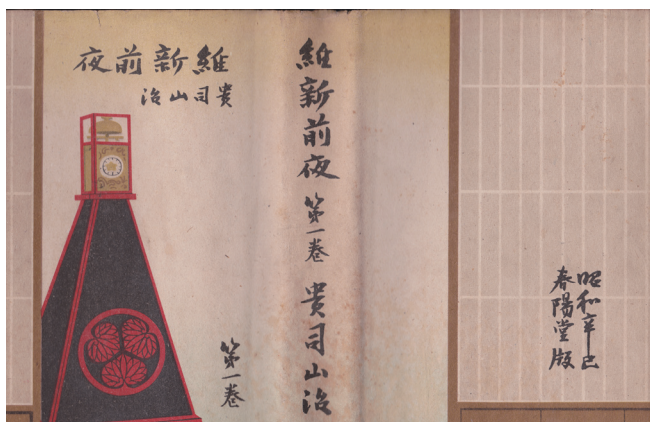 維新前夜
貴司山治
第一巻
維新前夜 第一巻 貴司山治
昭和辛巳
春陽堂版